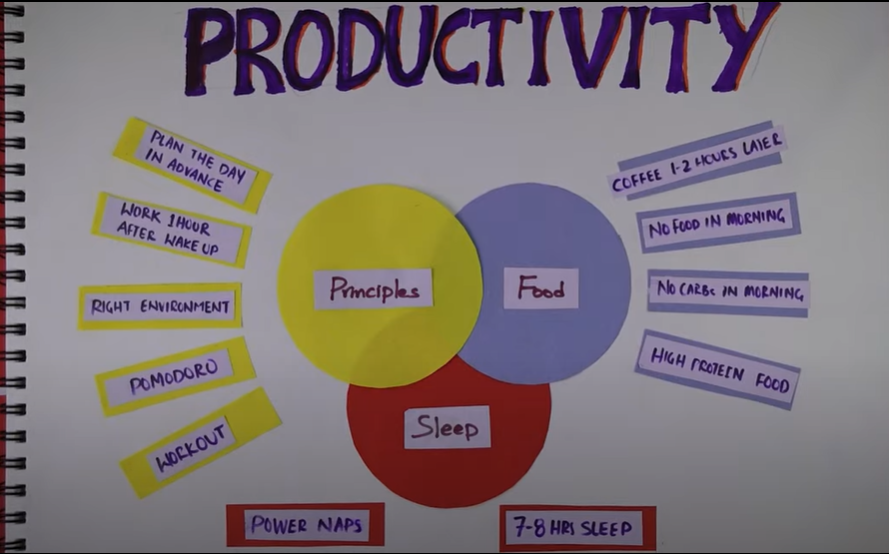 PRODUCTIVITY
PLAN THE DAY
IN ADVANCE
WORK 1 HOUR
AFTER WAKE UP
RIGHT ENVIRONMENT
POMODORO
WORKOUT
Principles
Food
Sleep
COFFEE 1-2 HOURS LATER
NO FOOD IN MORNING
NO CARBS IN MORNING
HIGH PROTEIN FOOD
POWER NAPS
7-8 HRS SLEEP